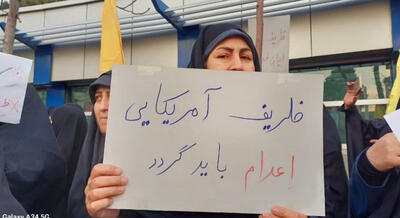 ظریف
ظریف آمریکایی
اعدام باید گردد
Galaxy A34 5G